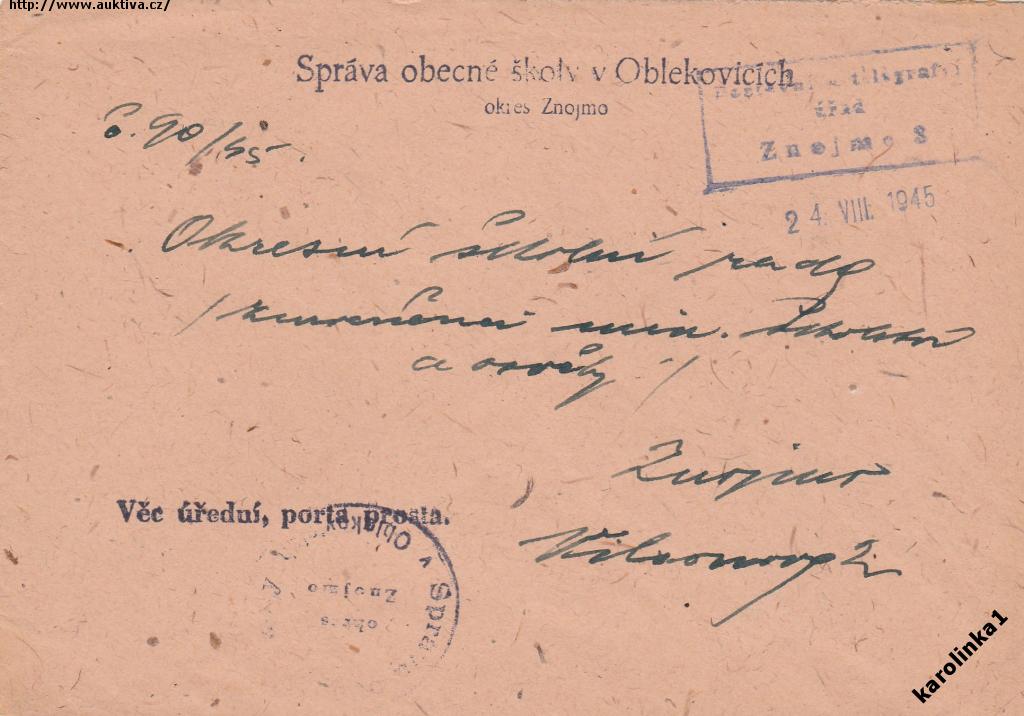 http://www.auktiva.cz/
Správa obecné školy v Oblekovicích
okres Znojmo
Poštovní a telegrafní
úřad
Znojmo 8
24. VIII. 1945
č. 90/45.
Okresní školní radě
/ zmocněnci min. školství
a osvěty /
Znojmo
Věc úřední, porta prostá.
Vilsonovy 2
Správa v Oblekov
okres
Znojmo
karolinka1